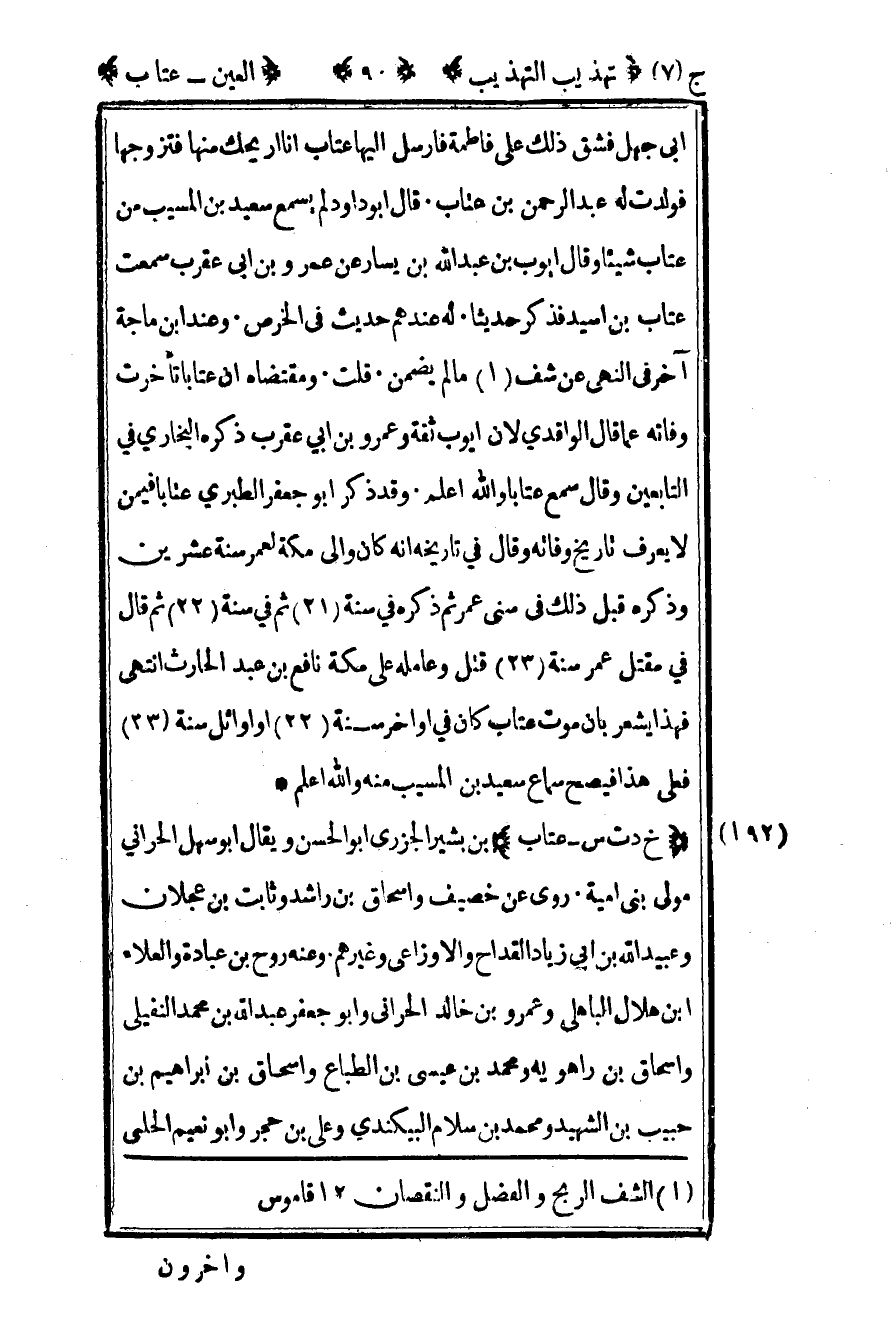 ج (٧) ﴿ تهذيب التهذيب ﴾ ﴿ ٩٠ ﴾ ﴿ العين ـ عتاب ﴾
ابى جهل فشق ذلك على فاطمة فارسل اليها عتاب انا اريحك منها فتزوجها
فولدت له عبد الرحمن بن عتاب · قال ابو داود لم يسمع سعيد بن المسيب من
عتاب شيئا وقال ايوب بن عبد الله بن يسار عن عمرو بن ابى عقرب سمعت
عتاب بن اسيد فذكر حديثا · له عندهم حديث فى الخرص · وعند ابن ماجة
آخر فى النهى عن شف (١) مالم يضمن · قلت · ومقتضاه ان عتابا تأخرت
وفاته عما قال الواقدي لان ايوب ثقة وعمرو بن ابي عقرب ذكره البخاري في
التابعين وقال سمع عتابا والله اعلم · وقد ذكر ابو جعفر الطبري عتابا فيمن
لا يعرف تاريخ وفاته وقال في تاريخه انه كان والى مكة لعمر سنة عشرين
وذكره قبل ذلك فى سنى عمر ثم ذكره في سنة (٢١) ثم في سنة (٢٢) ثم قال
في مقتل عمر سنة (٢٣) قتل وعامله على مكة نافع بن عبد الحارث انتهى
فهذا يشعر بان موت عتاب كان في اواخر سنة (٢٢) او اوائل سنة (٢٣)
فعلى هذا فيصح سماع سعيد بن المسيب منه والله اعلم *
﴿ خ د ت س ـ عتاب ﴾ بن بشير الجزرى ابو الحسن ويقال ابو سهل الحراني (١٩٢)
مولى بنى امية · روى عن خصيف واسحاق بن راشد وثابت بن عجلان
وعبيد الله بن ابي زياد القداح والاوزاعى وغيرهم · وعنه روح بن عبادة والعلاء
ابن هلال الباهلى وعمرو بن خالد الحرانى وابو جعفر عبد الله بن محمد النفيلى
واسحاق بن راهويه ومحمد بن عيسى بن الطباع واسحاق بن ابراهيم بن
حبيب بن الشهيد ومحمد بن سلام البيكندي وعلى بن حجر وابو نعيم الحلبى
(١) الشف الربح و الفضل و النقصان ١٢ قاموس
واخرون